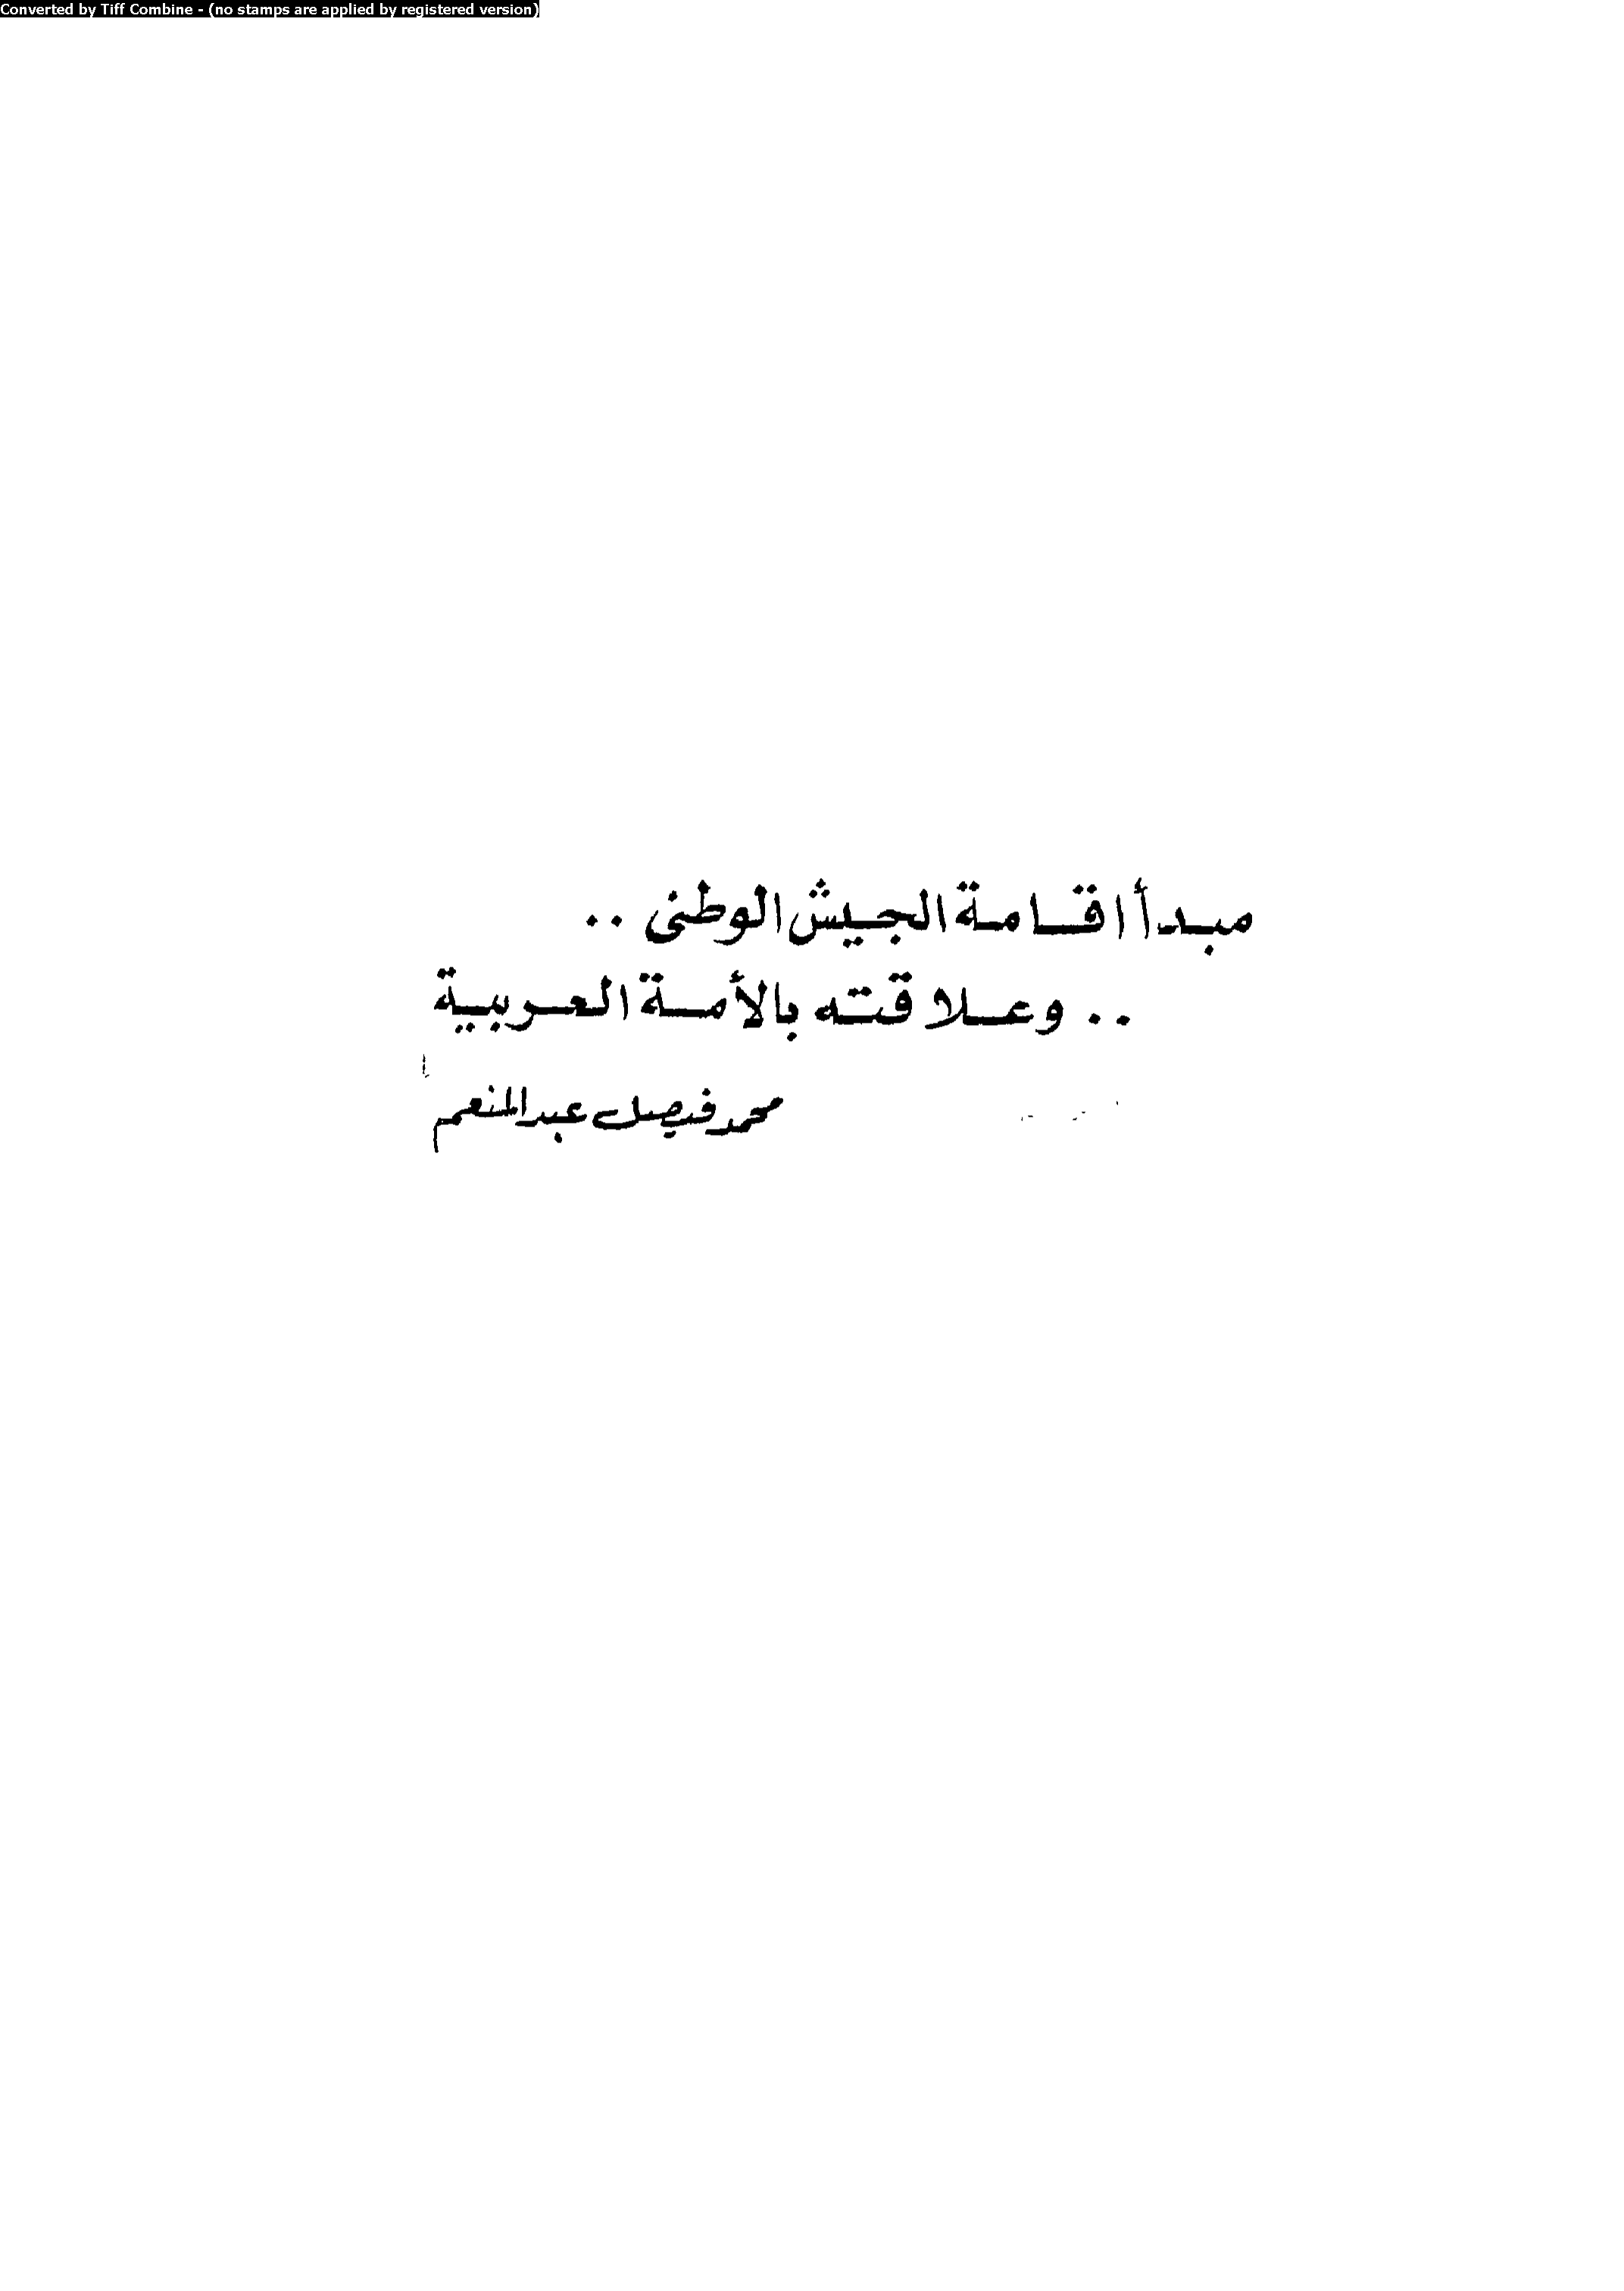 Converted by Tiff Combine - (no stamps are applied by registered version)
مبدأ اقامة الجيش الوطنى ..
.. وعلاقته بالأمة العربية
محمد فيصل عبد المنعم